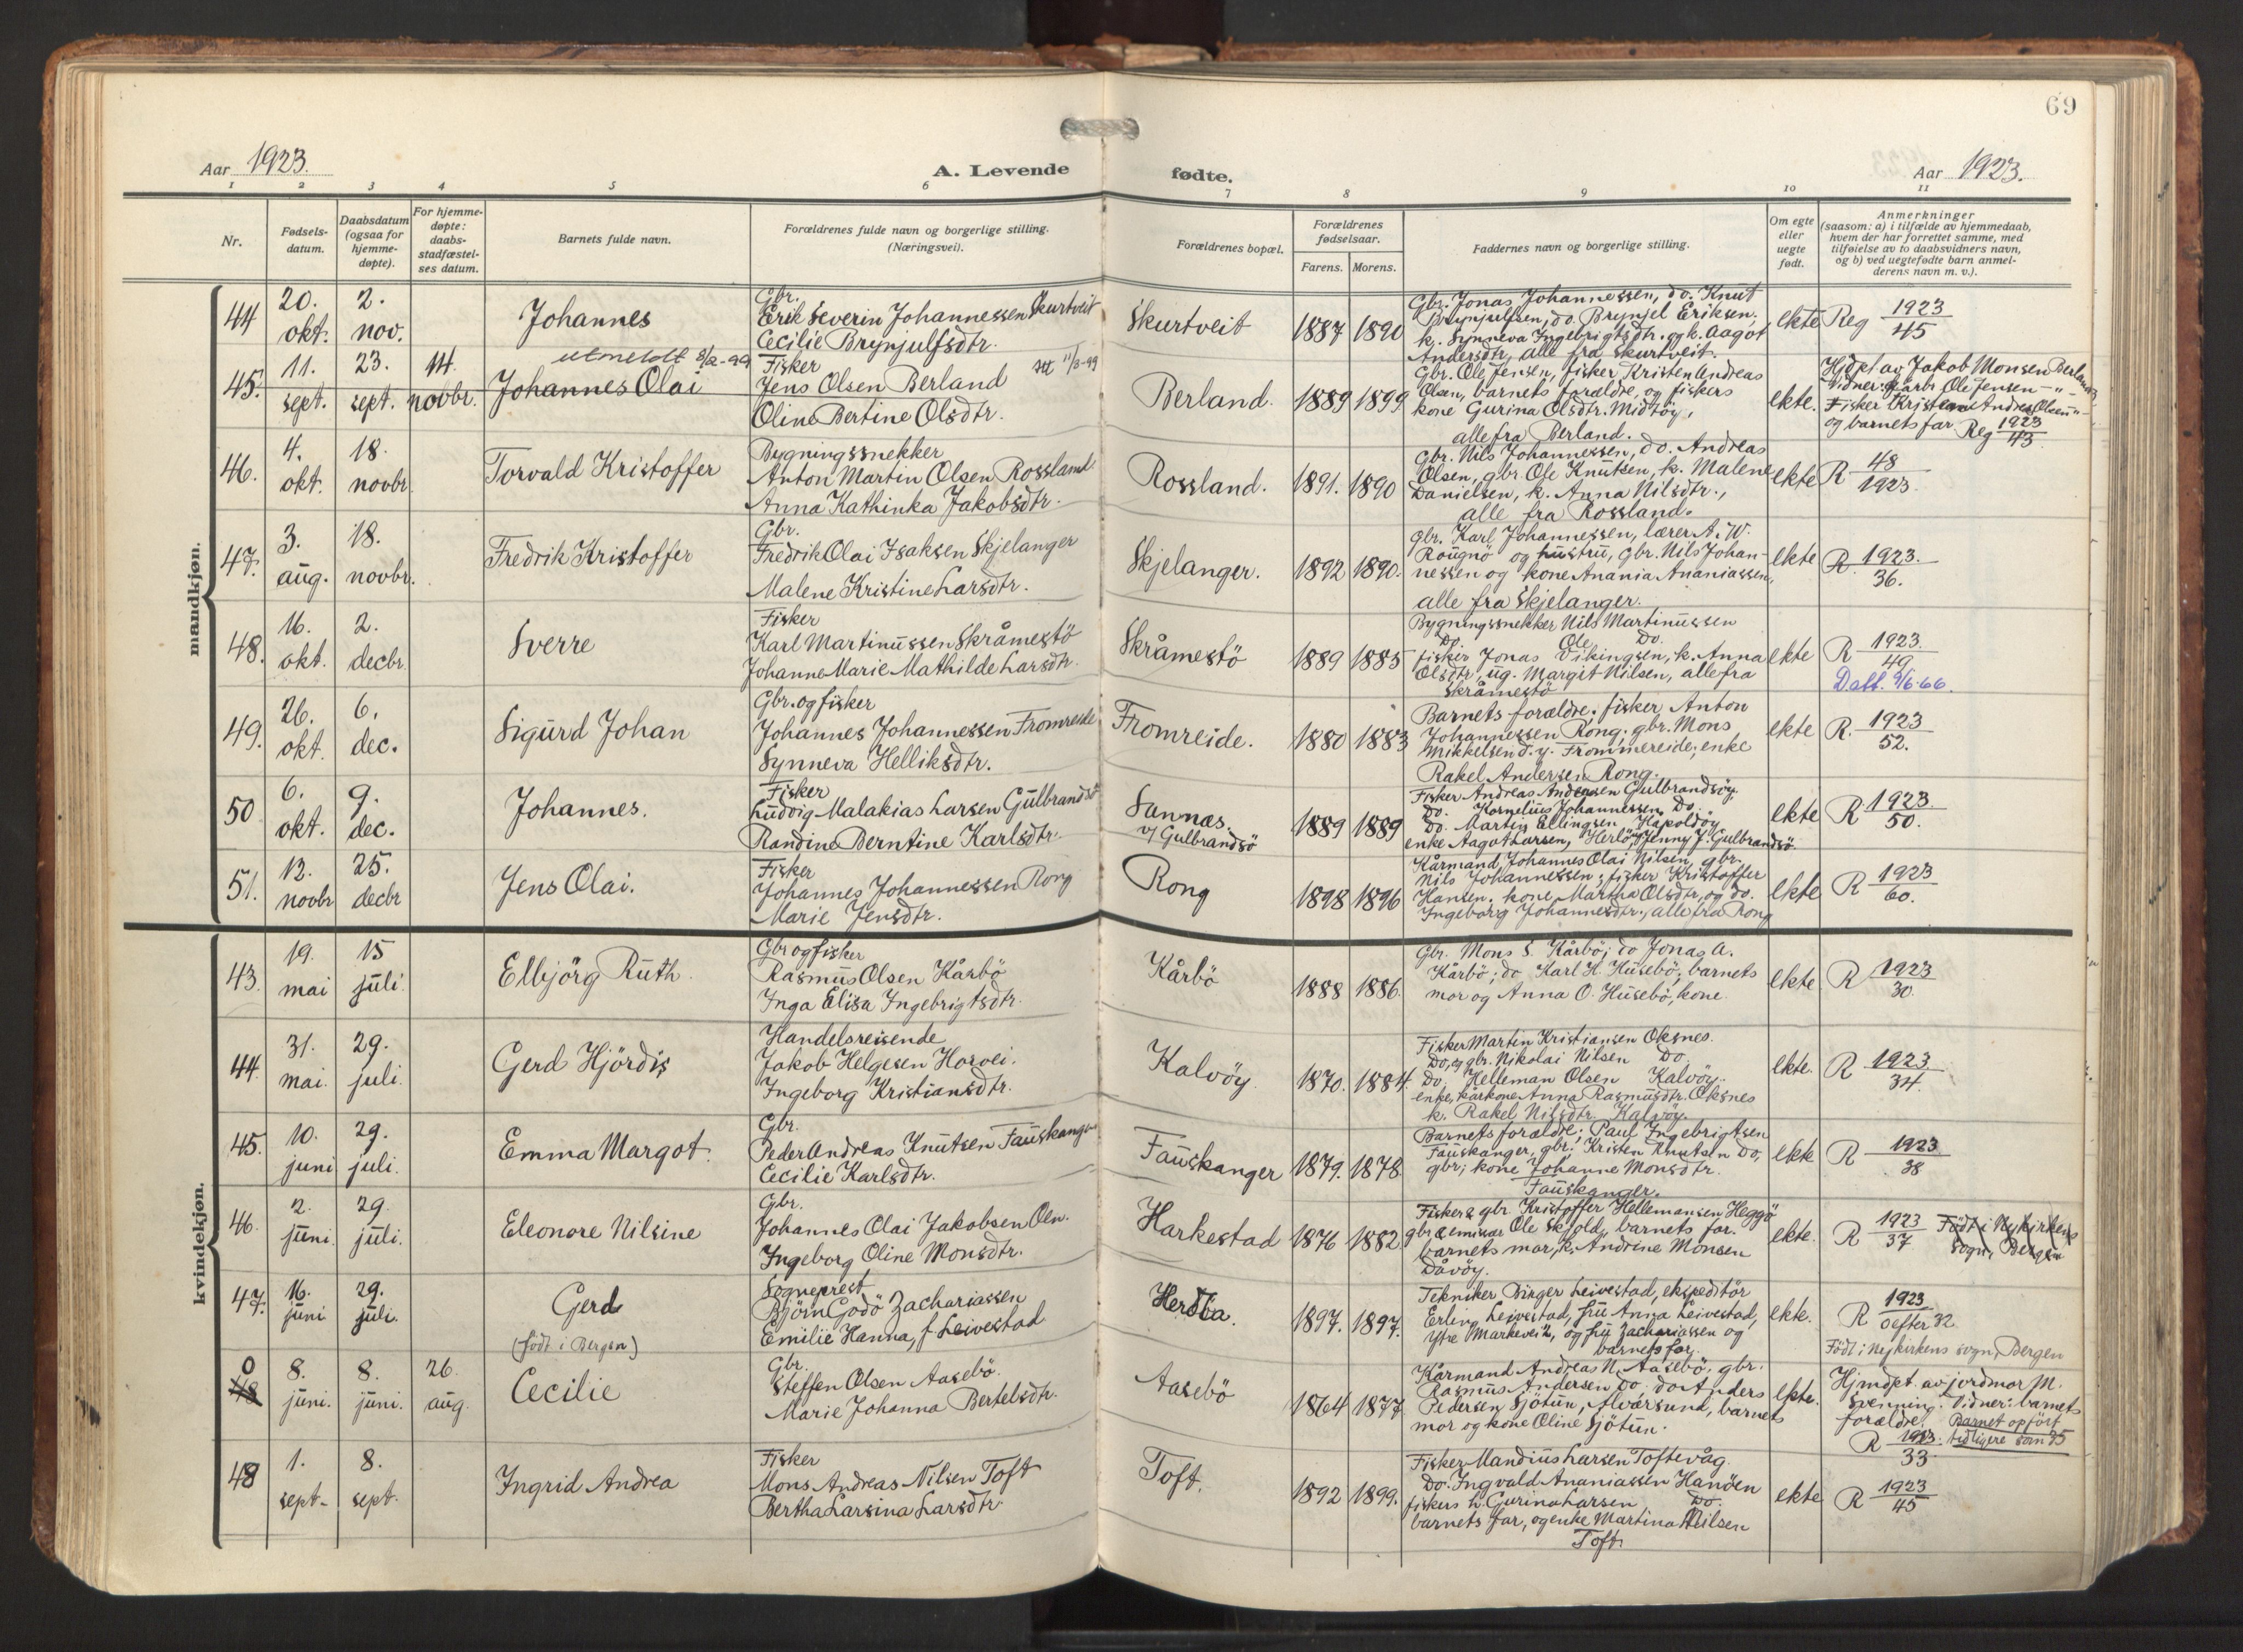 69
Aar 1923.
A. Levende fødte.
Aar 1923.
1 2 3 4 5 6 7 8 9 10 11
Nr.
Fødsels-
datum.
Daabsdatum
(ogsaa for
hjemme-
døpte).
For hjemme-
døpte:
daabs-
stadfæstel-
ses datum.
Barnets fulde navn.
Forældrenes fulde navn og borgerlige stilling.
(Næringsvei).
Forældrenes bopæl.
Forældrenes
fødselsaar.
Farens. Morens.
Faddernes navn og borgerlige stilling.
Om egte
eller
uegte
født.
Anmerkninger
(saasom: a) i tilfælde av hjemmedaab,
hvem der har forrettet samme, med
tilføielse av to daabsvidners navn,
og b) ved uegtefødte barn anmel-
derens navn m. v.).
mandkjøn.
44
20.
okt.
2.
nov.
Johannes
Gbr.
Erik Severin Johannessen Skurtveit
Cecilie Brynjulfsdtr.
Skurtveit
1887 1890
Gbr. Jonas Johannessen, do. Knut
Brynjulfsen, do. Brynjel Eriksen.
k. Synneva Ingebrigtsdtr. og k. Aagot
Andersdtr, alle fra Skurtveit.
ekte
Reg 1923
45
45.
11.
sept.
23.
sept.
14.
novbr.
utmeldt 8/2-99
Johannes Olai
Fisker
Jens Olsen Berland
11/3-99
Oline Bertine Olsdtr.
Berland.
1889 1899
Gbr. Ole Jensen, fisker Kristen Andreas
Olsen, barnets forældre, og fiskers
kone Gurina Olsdtr. Midtöy,
alle fra Berland.
ekte.
Hjdpt av Jakob Monsen Berland
Vidner: Kårbr Ole Jensen -"-
Fisker Kristen Andreas Olsen -"-
og barnets far Reg 1923
43
46.
4.
okt.
18.
novbr.
Torvald Kristoffer
Bygningssnekker
Anton Martin Olsen Rossland.
Anna Kathinka Jakobsdtr.
Rossland.
1891. 1890
Gbr. Nils Johannessen, do. Andreas
Olsen, gbr. Ole Knutsen, k. Malene
Danielsen, k. Anna Nilsdtr.,
alle fra Rossland.
ekte
R 48
1923
47.
3.
aug.
18.
novbr.
Fredrik Kristoffer
Gbr.
Fredrik Olai Isaksen Skjelanger
Malene Kristine Larsdtr.
Skjelanger.
1892 1890.
gbr. Karl Johannessen, lærer A. W.
Rougnö og hustru, gbr. Nils Johan-
nessen og kone Anania Ananiassen,
alle fra Skjelanger.
ekte
R. 1923.
36.
48.
16.
okt.
2.
decbr.
Sverre
Fisker
Karl Martinussen Skråmestö
Johanne Marie Mathilde Larsdtr.
Skråmestö
1889 1885
Bygningssnekker Nils Martinussen
Do. Ole Do.
fisker Jonas Vikingsen, k. Anna
Olsdtr, ug. Margit Nilsen, alle fra
Skråmestö
ekte
R 1923.
49
Datt. 9/6.66.
49.
26.
okt.
6.
dec.
Sigurd Johan
Gbr. og fisker
Johannes Johannessen Fromreide
Synneva Helliksdtr.
Fromreide.
1880 1883
Barnets forældre; fisker Anton
Johannessen Rong; gbr. Mons
Mikkelsen d.y. Frommereide, enke
Rakel Andersen Rong.
ekte
R. 1923
52.
50
6.
okt.
9.
dec.
Johannes.
Fisker
Ludvig Malakias Larsen Gulbrandsö
Randine Berntine Karlsdtr.
Sannas.
v/ Gulbrandsö
1889 1889
Fisker Andreas Andersen Gulbrandsöy,
Do. Kornelius Johannessen Do.
Do. Martin Ellingsen Håpoldöy
enke Aagot Larsen, Herlö og Jenny J. Gulbrandsö.
ekte
R 1923.
50.
51.
12.
novbr
25.
decbr
Jens Olai.
Fisker
Johannes Johannessen Rong
Marie Jensdtr.
Rong
1898 1896
Kårmand Johannes Olai Nilsen, gbr.
Nils Johannessen; fisker Kristoffer
Hansen. kone Martha Olsdtr, og do.
Ingeborg Johannesdtr., alle fra Rong
ekte
R 1923
60.
kvindekjøn.
43.
19.
mai
15
juli.
Elbjörg Ruth.
Gbr og fisker
Rasmus Olsen Kårbö
Inga Elisa Ingebrigtsdtr.
Kårbö
1888 1886.
Gbr. Mons S. Kårbö; do Jonas A.
Kårbö; do Karl H. Husebö; barnets
mor og Anna O. Husebö, kone
ekte.
R 1923
30.
44.
31.
mai.
29.
juli.
Gerd Hjördis
Handelsreisende
Jakob Helgesen Horvei.
Ingeborg Kristiansdtr.
Kalvöy.
1870. 1884.
Fisker Martin Kristiansen Oksnes.
Do, og gbr. Nikolai Nilsen Do.
Do. Helleman Olsen Kalvöy.
enke, kårkone Anna Rasmusdtr. Oksnes
k. Rakel Nilsdtr. Kalvöy.
ekte.
R 1923
34.
45.
10.
juni
29.
juli.
Emma Margot.
Gbr.
Peder Andreas Knutsen Fauskanger
Cecilie Karlsdtr.
Fauskanger
1879. 1878.
Barnets forældre; Paul Ingebrigtsen
Fauskanger, gbr; Kristen Knutsen Do,
gbr; kone Johanne Monsdtr.
Fauskanger.
ekte
R 1923
38
46.
2.
juni.
29.
juli.
Eleonore Nilsine
Gbr.
Johannes Olai Jakobsen Oen.
Ingeborg Oline Monsdtr.
Harkestad
1876 1882
Fisker & gbr Kristoffer Hellemansen Heggö
gbr & emissær Ole Skjold, barnets far.
barnets mor, k. Andrine Monsen
Dåvöy.
ekte.
R 1923
37
Födt i Nykirkens
sogn, Bergen
47.
16.
juni
29.
juli.
Gerd
(födt i Bergen)
Sogneprest
Björn Godö Zachariassen
Emilie Hanna, f. Leivestad
Herdla.
1897. 1897.
Tekniker Birger Leivestad, ekspeditör
Erling Leivestad, fru Anna Leivestad,
Ytre Markevei 2, og fru Zachariassen og
barnets far.
ekte.
R 1923
oefter 32
Födt i Nykirkens sogn, Bergen
0
48
8.
juni.
8.
juni.
26.
aug.
Cecilie
Gbr.
Steffen Olsen Aasebö.
Marie Johanna Bertelsdtr.
Aasebö
1864 1877.
Kårmand Andreas N. Aasebö, gbr.
Rasmus Andersen Do, do Anders
Pedersen Sjötun, Alværsund, barnets
mor og kone Oline Sjötun.
ekte.
Hjmdpt. av jordmor M.
Svenning. Vidner: barnets
forældre. Barnet opfört
R 1923. tidligere som 35
33
48
1.
sept.
8.
sept.
Ingrid Andrea
Fisker
Mons Andreas Nilsen Toft
Bertha Larsina Larsdtr.
Toft.
1892 1899.
Fisker Mandius Larsen Toftevåg.
Do. Ingvald Ananiassen Hanöen
fiskers h. Gurina Larsen, Do.
barnets far, og enke Martina Nilsen
Toft.
ekte
R 1923
45